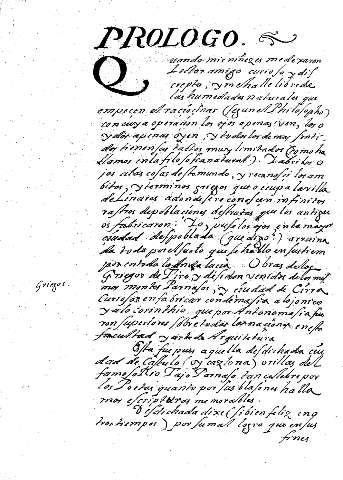 PROLOGO.
Quando mis niñezes me dexaron
Lector amigo curioso y dis
creto, y me halle libre de
las humedades naturales que
empecen el raciocinar (segun el Philosopho)
con cuya operacion los ojos apenas ven, los o
ydos apenas oyen, y todos los demas senti
dos tienen sus actos muy limitados (como ha
llamos en la filosofia natural). Labri los o
jos a las cosas del mundo, y reconosci los am
bitos, y terminos griegos que ocupa la villa
de Linares adonde se conoscen infinitos
rastros de poblaciones destruidas que los antiguos
fabricaron: Yo, puse los ojos en la mayor
ciudad despoblada (que digo) arruina
da toda por el suelo que se hallo en su tiem
po en toda la Andalucia. Obras de los
Griegos
Griegos de Tiro, y
montes Parnasos, y ciudad de Cirra
Curiosos en fabricar con demasia a lo jonico
y a lo corinthio que por Antonomasia fue
ron superiores sobre todas las naciones en esta
facultad y arte de Arquitetura.
Esta fue pues aquella desdichada ciu
dad de (oy Cazlona) orillas del
famoso Rio Tajo Parnaso tan celebre por
los Poetas quanto por sus blasones halla
mos escripturas memorables.
Desdichada dixe (si bien feliz en o
tros tiempos) por su mal logro que en sus
fines